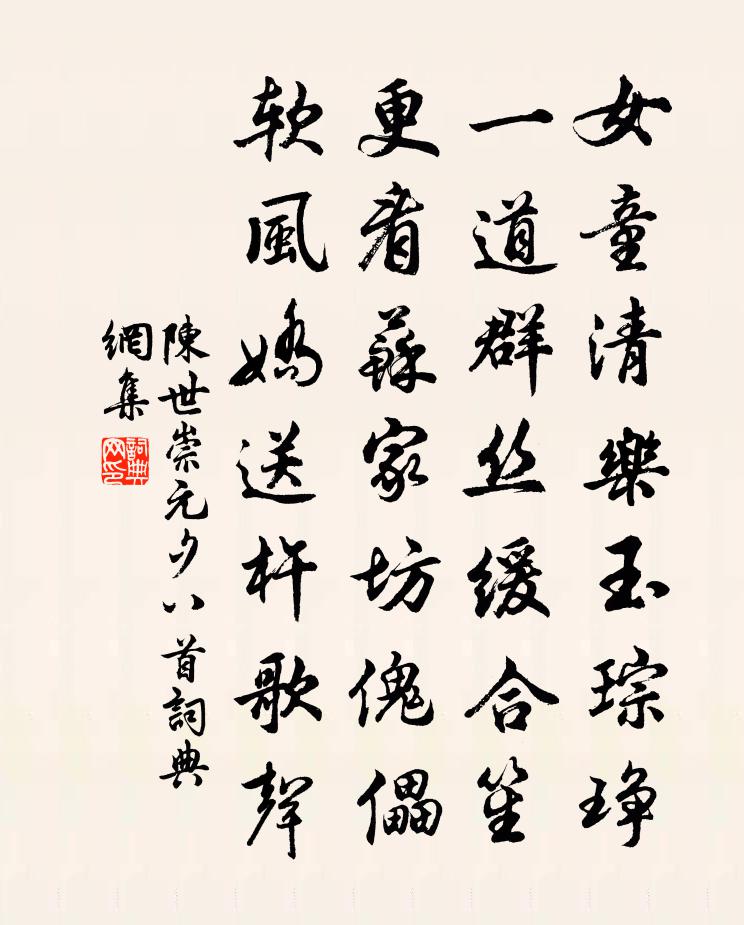 女童清樂玉琮琤
一道群丝緩合笙
更看蘇家坊傀儡
軟風嬌送杵歌聲
陳世崇元夕八首詞典
網集
詞典
网印